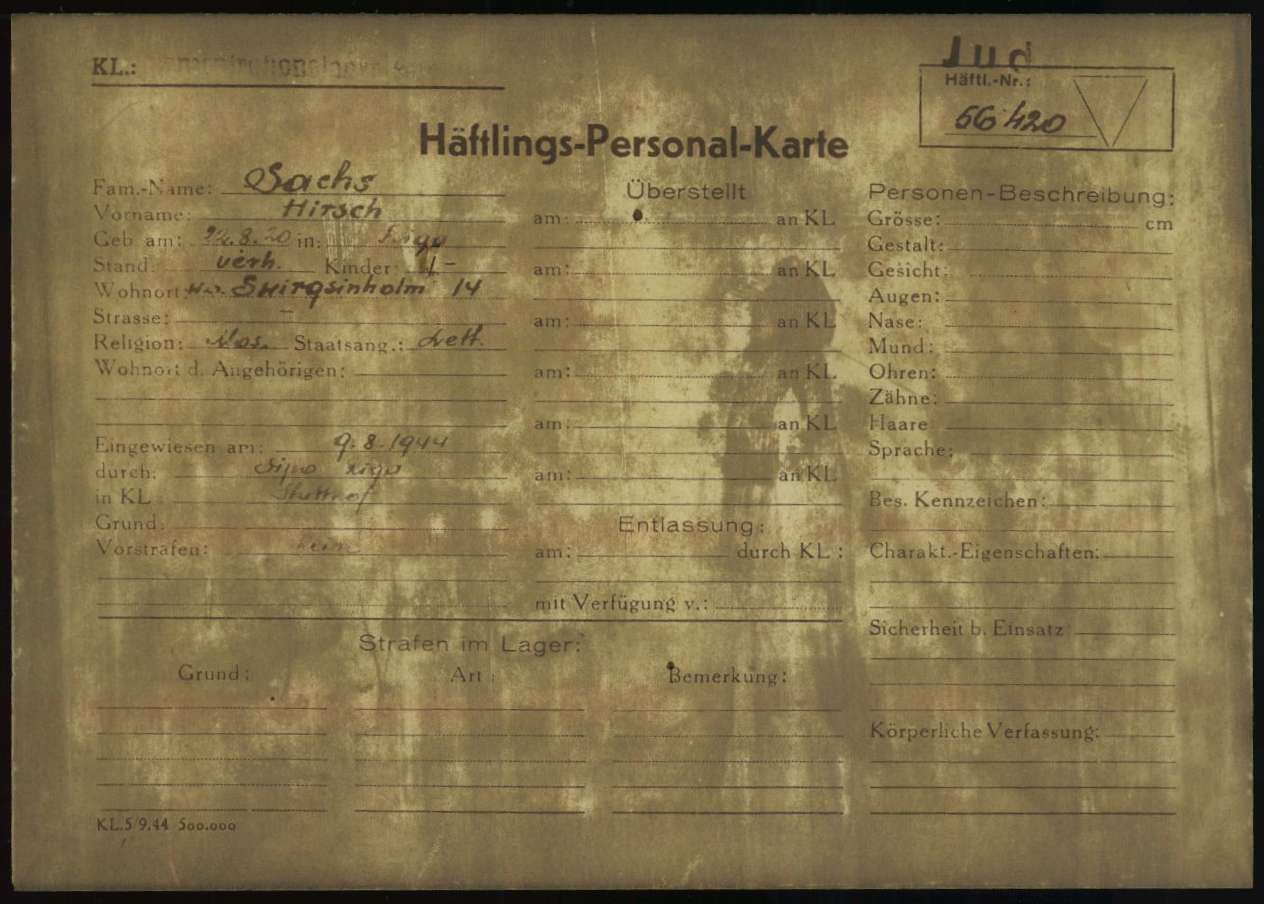 KL.:
Jud
Häftl.-Nr.:
56420
Häftlings-Personal-Karte
Fam.-Name: Sachs
Vorname: Hirsch
Geb. am: 8.20 in: Riga
Stand: verh. Kinder: 1-
Wohnort: 14
Strasse: –
Religion: Mos. Staatsang.: Lett.
Wohnort d. Angehörigen:
Eingewiesen am: 9.8.1944
durch: Sipo Riga
in KL: Stutthof
Grund:
Vorstrafen: keine
Überstellt
am: an KL
am: an KL
am: an KL
am: an KL
am: an KL
am: an KL
Entlassung:
am: durch KL:
mit Verfügung v.:
Strafen im Lager:
Grund: Art: Bemerkung:
Personen-Beschreibung:
Grösse: cm
Gestalt:
Gesicht:
Augen:
Nase:
Mund:
Ohren:
Zähne:
Haare
Sprache:
Bes. Kennzeichen:
Charakt.-Eigenschaften:
Sicherheit b. Einsatz:
Körperliche Verfassung:
KL.5/9.44 500.000